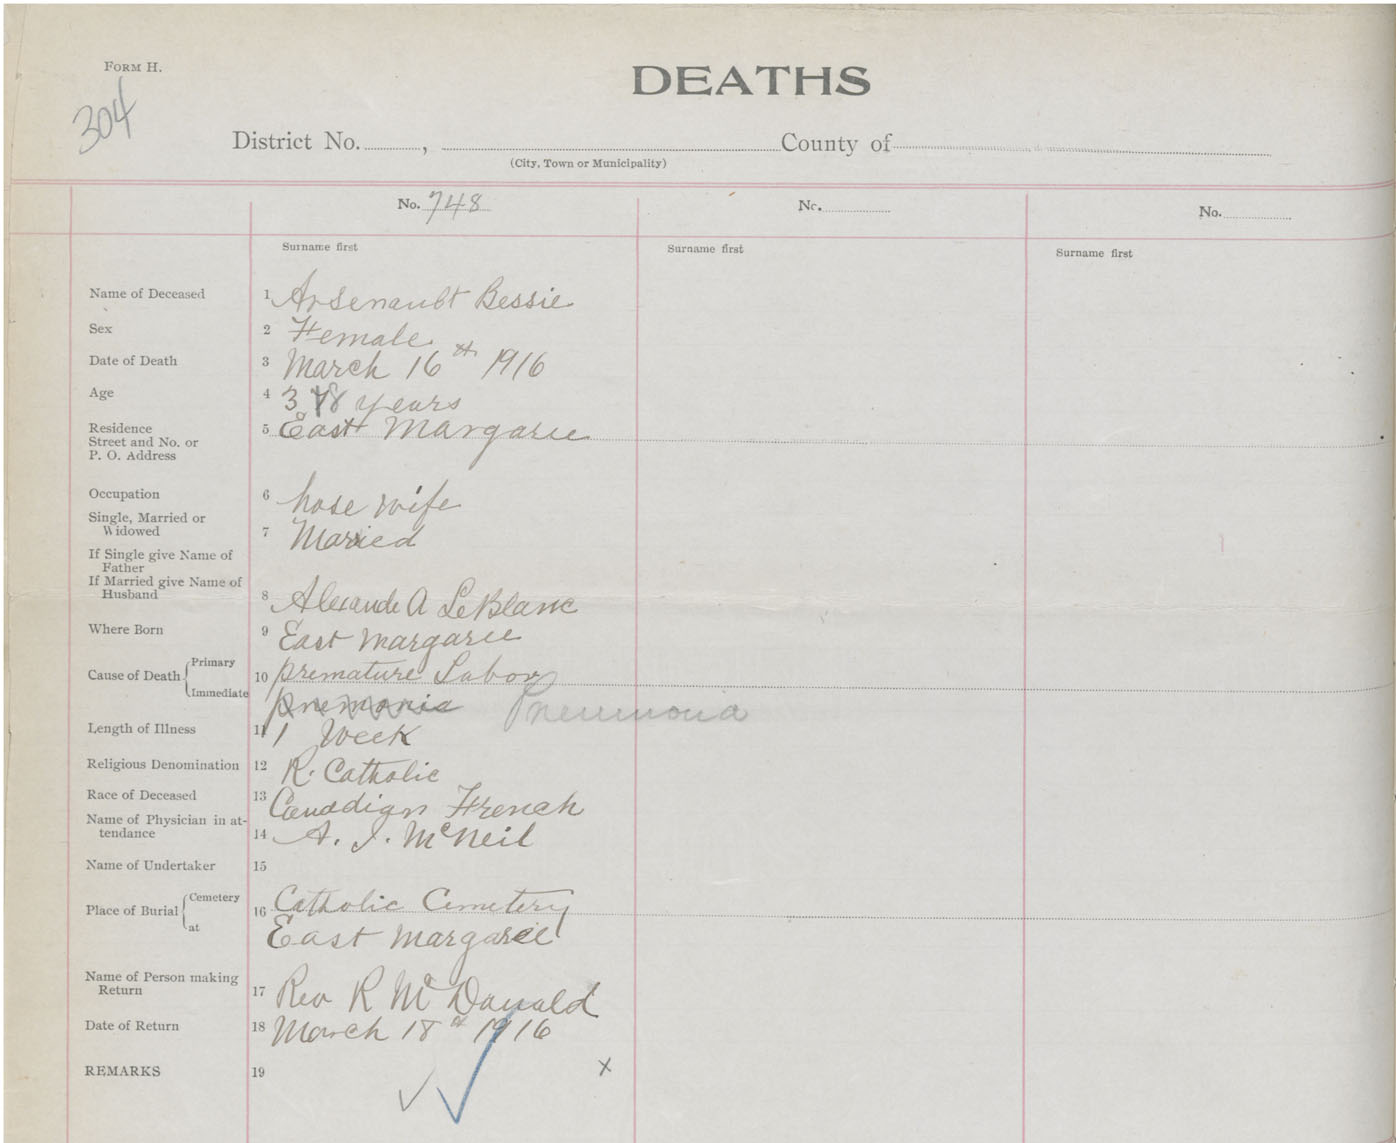 FORM H.
304
DEATHS
District No. , County of
(City, Town or Municipality)
No. 748 No. No.
Surname first Surname first Surname first
Name of Deceased 1 Arsenault Bessie
Sex 2 Female
Date of Death 3 March 16th 1916
Age 4 38 years
Residence 5 East Margaree
Street and No. or
P. O. Address
Occupation 6 hose wife
Single, Married or
Widowed 7 Maried
If Single give Name of
Father
If Married give Name of
Husband 8 Alexande A LeBlanc
Where Born 9 East Margaree
Cause of Death Primary 10 premature Labor
Immediate pnemonia Pneumona
Length of Illness 11 1 Week
Religious Denomination 12 R. Catholic
Race of Deceased 13 Canddign French
Name of Physician in at-
tendance 14 A. J. McNeil
Name of Undertaker 15
Place of Burial Cemetery 16 Catholic Cemetery
at East Margaree
Name of Person making
Return 17 Rev R McDonald
Date of Return 18 March 18th 1916
REMARKS 19 x